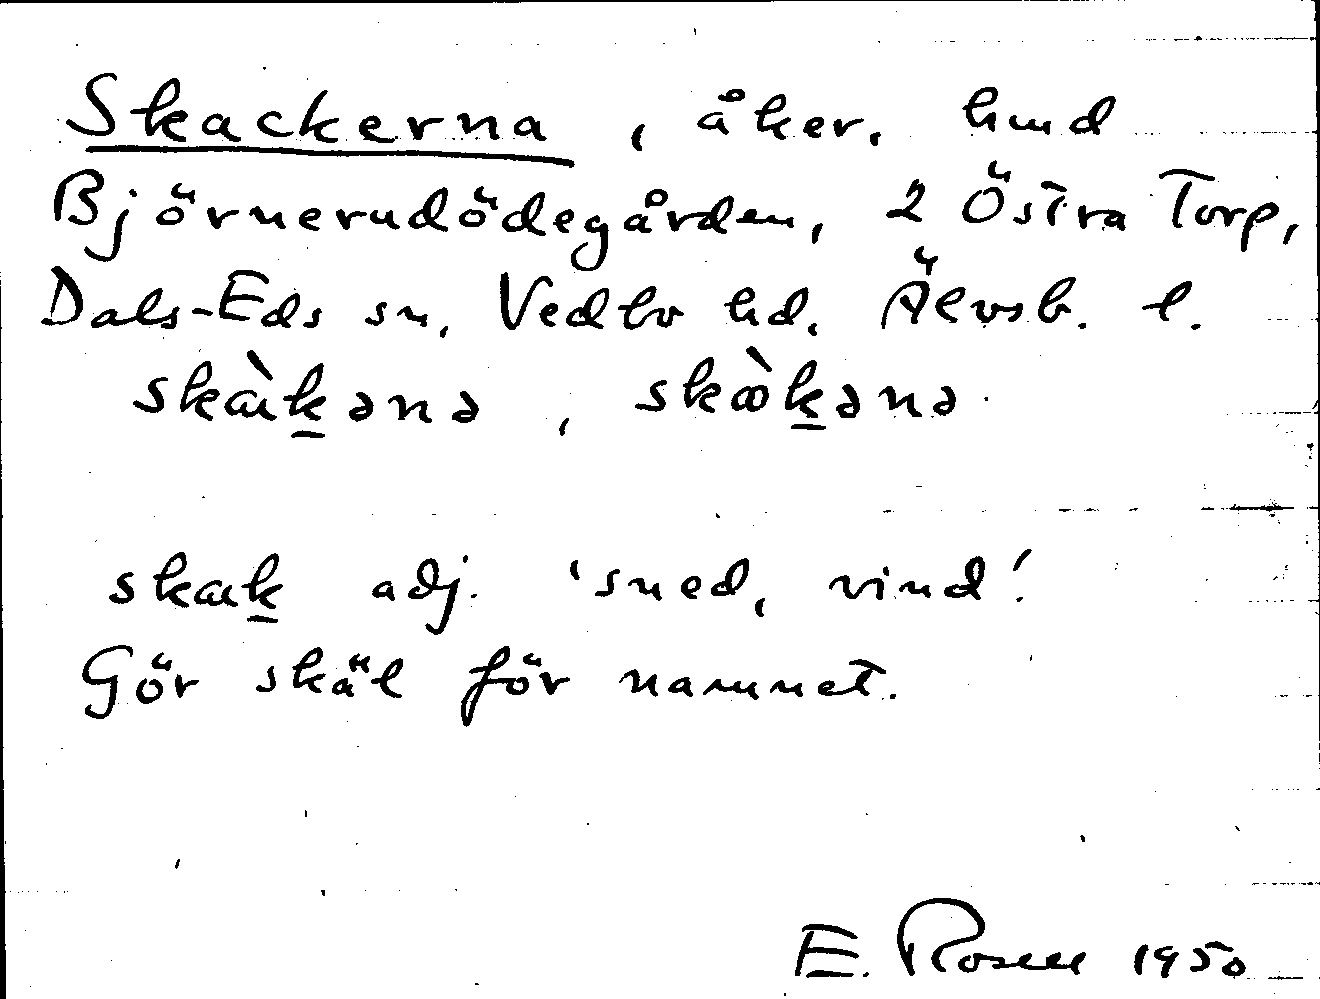 Skackerna, åker, hmd
Björnerudödegården, 2 Östra Torp,
Dals-Eds sn, Vedbo hd. Älvsb. l.
skàk̲ənə, skòk̲ənə.
skak̲ adj. 'sned, vind'.
Gör skäl för namnet.
E. Rosell 1950